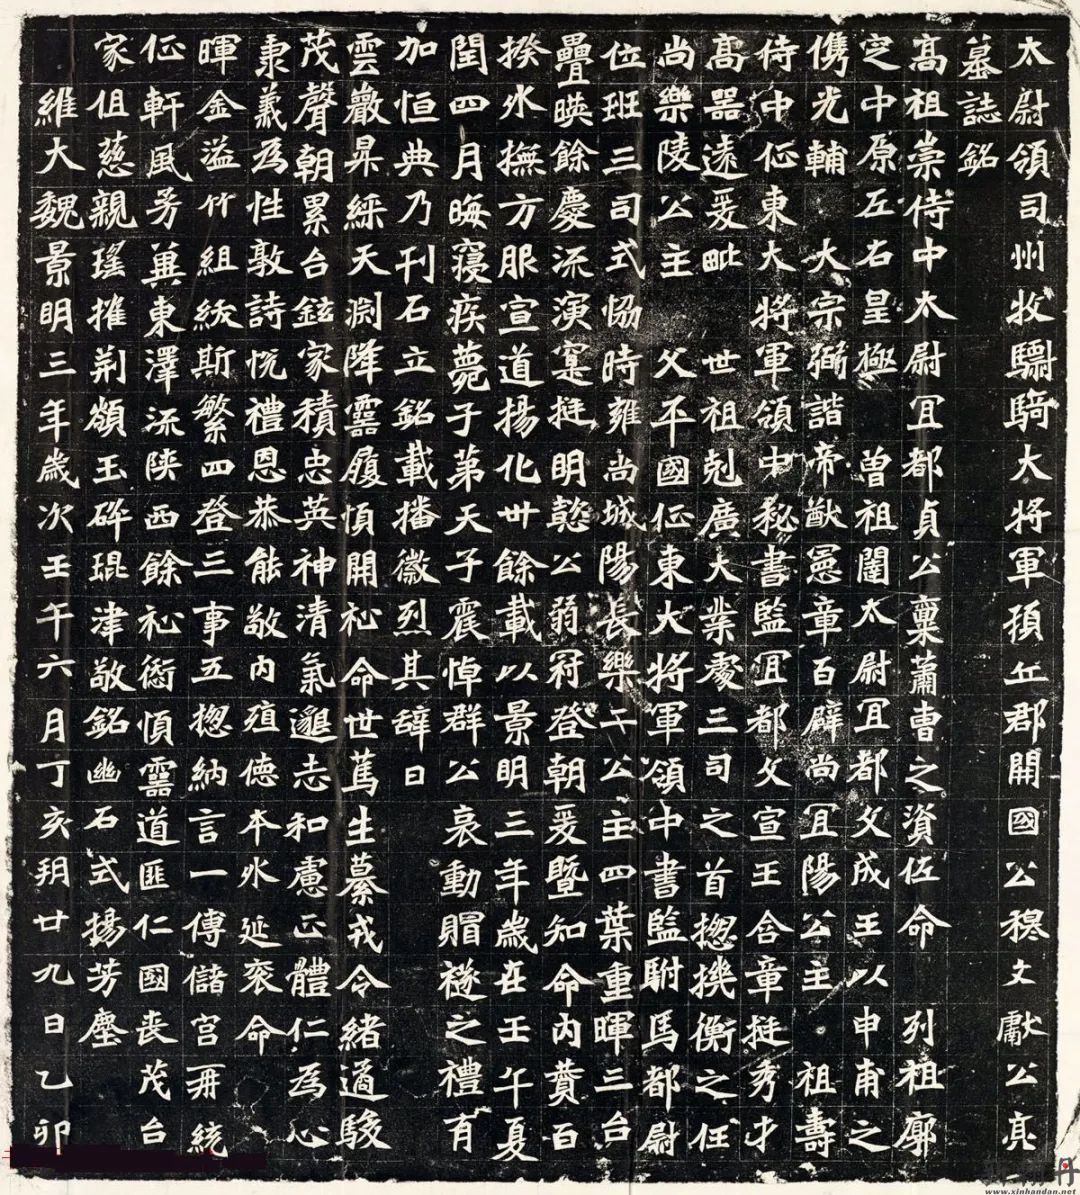 太尉領司州牧驃騎大將軍頓丘郡開國公穆文獻公亮
墓誌銘
高祖崇侍中太尉冝都貞公稟蕭曹之資佐命 列祖廓
㝎中原左右皇極 曾祖闥太尉冝都文成王以申甫之
儁光輔 大宗弼諧帝猷憲章百辟尚冝陽公主 祖壽
侍中征東大將軍領中秘書監冝都文宣王含章挺秀才
高器遠爰毗 世祖剋廣大業處三司之首揔機衡之任
尚樂陵公主 父平國征東大將軍領中書監駙馬都尉
位班三司式協時雍尚城陽長樂二公主四葉重暉三台
疊暎餘慶流演寔挺明懿公弱冠登朝爰暨知命內賛百
揆外撫方服宣道揚化卅餘載以景明三年歲在壬午夏
閏四月晦寢疾薨于第天子震悼群公哀動賵襚之禮有
加恒典乃刊石立銘載播徽烈其辞曰
雲巖昇綵天渊降靈履順開祉命世篤生纂戎令緒遹駿
茂聲朝累台鉉家積忠英神清氣邈志和慮正體仁為心
秉義為性敦詩恱禮恩恭能敬內殖德本外延衮命
暉金溢竹組紱斯繁四登三事五揔納言一傅儲宮再統
征軒風芳冀東澤流陝西餘祉銜順靈道匪仁國喪茂台
家徂慈親瑤摧荊嶺玉碎琨津敬銘幽石式揚芳塵
維大魏景明三年歲次壬午六月丁亥朔廿九日乙卯
www.xinhandan.net